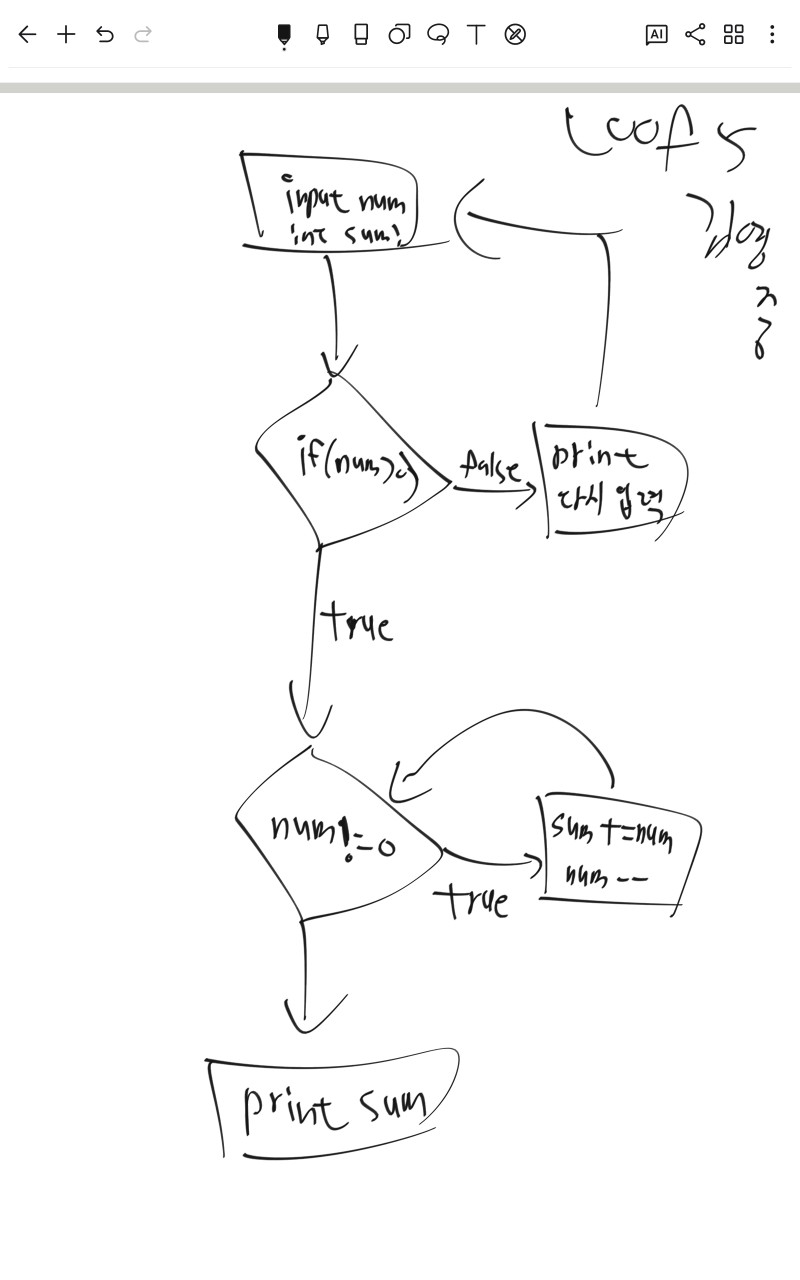 AI
input num
int sum;
if(num>0)
false
print
다시 입력
true
num!=0
true
sum +=num
num --
print sum